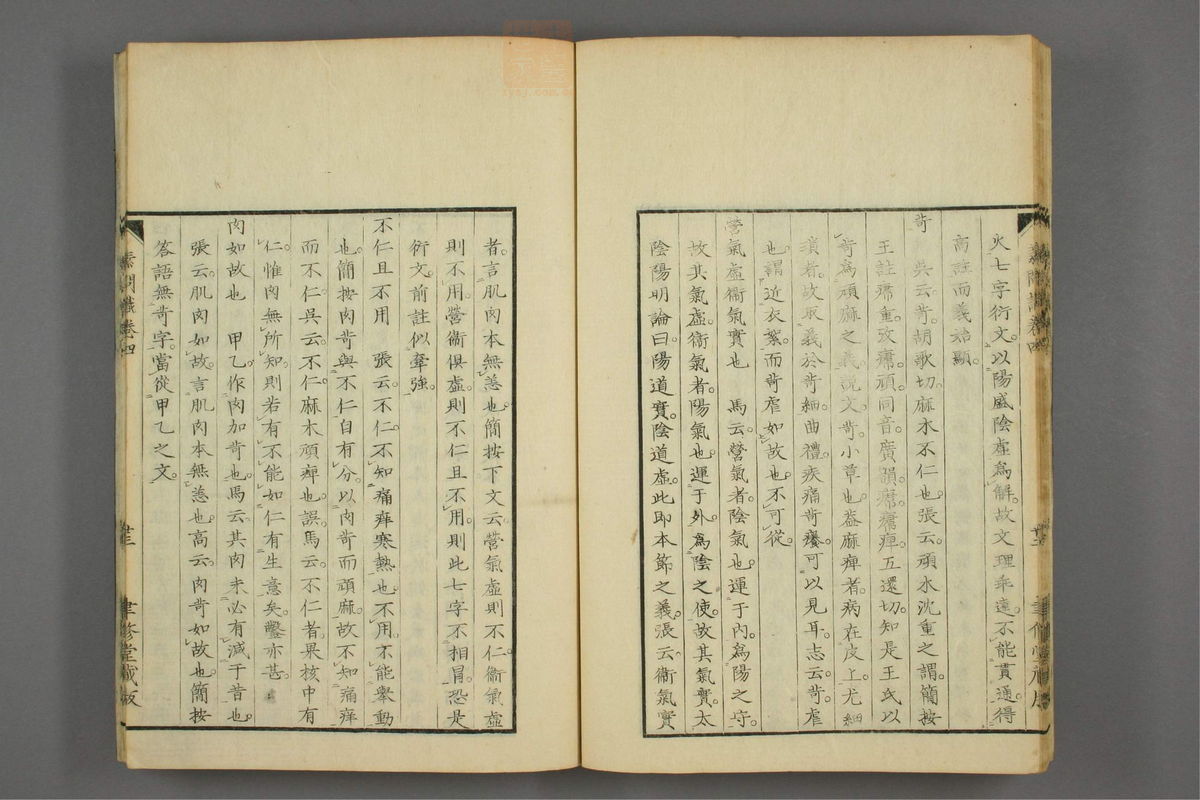 火七字衍文以陽盛陰虛爲解故文理乖違不能貫通得
高註而義始顯
苛　吳云苛胡歌切麻木不仁也張云頑木沈重之謂簡按
王註𤸷重攷𤸷頑同音廣韻𤸷痺五還切知是王氏以
苛爲頑麻之義說文苛小草也蓋麻痺者病在皮上尤細
瑣者故取義於苛細曲禮疾痛苛癢可以見耳志云苛虐
也謂近衣絮而苛虐如故也不可從
營氣虛衞氣實也　馬云營氣者陰氣也運于內爲陽之守
故其氣虛衞氣者陽氣也運于外爲陰之使故其氣實太
陰陽明論曰陽道實陰道虛此即本節之義張云衞氣實
者言肌肉本無恙也簡按下文云營氣虛則不仁衞氣虛
則不用營衞俱虛則不仁且不用則此七字不相冒恐是
衍文前註似牽強
不仁且不用　張云不仁不知痛痒寒熱也不用不能舉動
也簡按肉苛與不仁自有分以肉苛而頑麻故不知痛痒
而不仁吳云不仁麻木頑痺也誤馬云不仁者果核中有
仁惟肉無所知則若有不能如仁有生意矣鑿亦甚
肉如故也　甲乙作肉加苛也馬云其肉未必有減于昔也
張云肌肉如故言肌肉本無恙也高云肉苛如故也簡按
答語無苛字當從甲乙之文
素問識卷四
聿修堂藏版